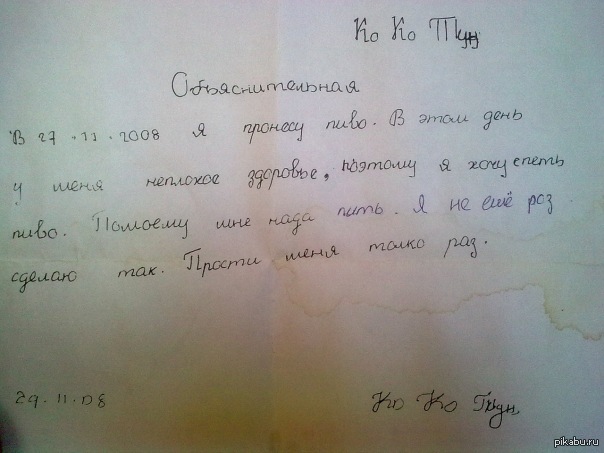 Ко Ко Тхун
Объяснительная
В 27.11.2008 я пронесу пиво. В этом день
у меня неплохое здоровье, поэтому я хочу спеть
пиво. Помоему мне нада пить. Я не ещё раз
сделаю так. Прости меня толко раз.
29.11.08
Ко Ко Тхун
pikabu.ru